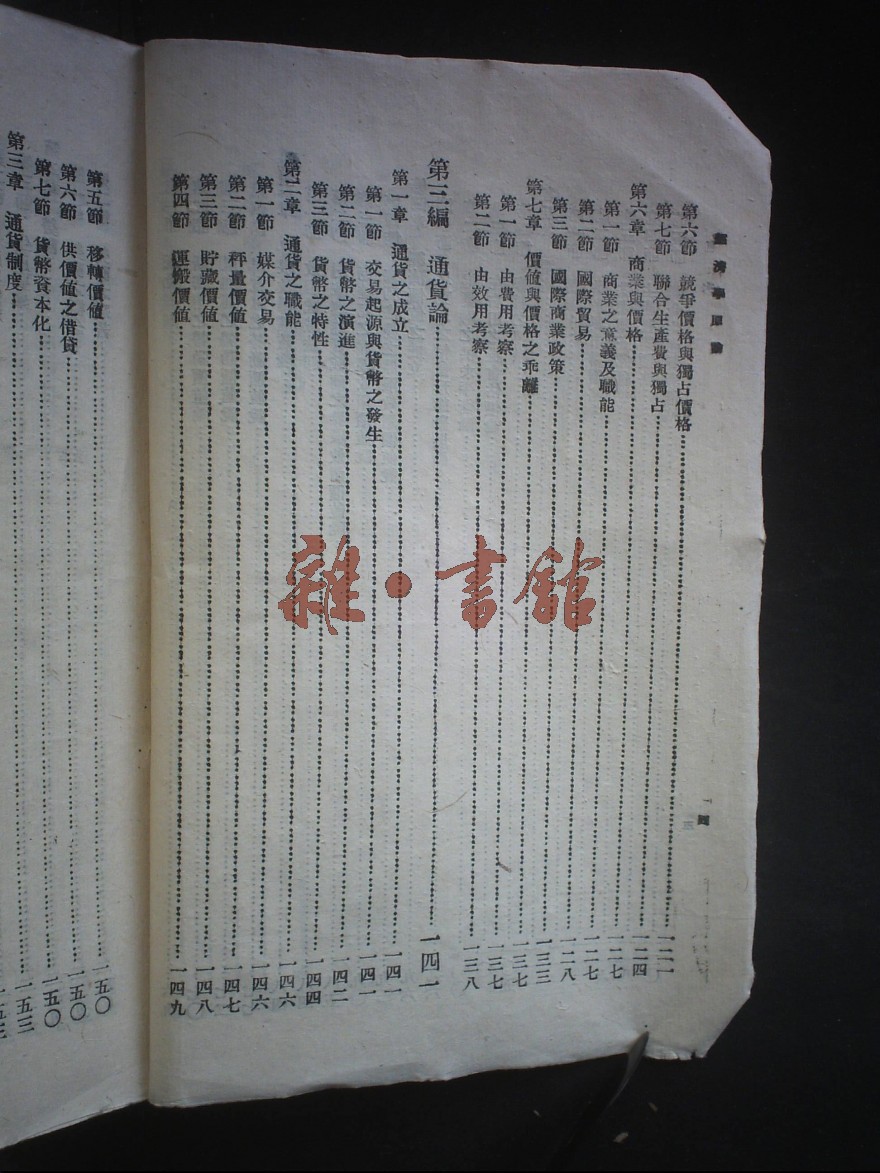 經濟學原論
四
第六節 競爭價格與獨占價格 一二一
第七節 聯合生產費與獨占 一二二
第六章 商業與價格 一二四
第一節 商業之意義及職能 一二七
第二節 國際貿易 一二七
第三節 國際商業政策 一二八
第七章 價值與價格之乖離 一三三
第一節 由費用考察 一三七
第二節 由效用考察 一三八
第三編 通貨論 一四一
第一章 通貨之成立 一四一
第一節 交易起源與貨幣之發生 一四一
第二節 貨幣之演進 一四二
第三節 貨幣之特性 一四四
第二章 通貨之職能 一四六
第一節 媒介交易 一四六
第二節 秤量價值 一四七
第三節 貯藏價值 一四八
第四節 運搬價值 一四九
第五節 移轉價值 一五〇
第六節 供價值之借貸 一五〇
第七節 貨幣資本化 一五〇
第三章 通貨制度 一五三
雜·書館